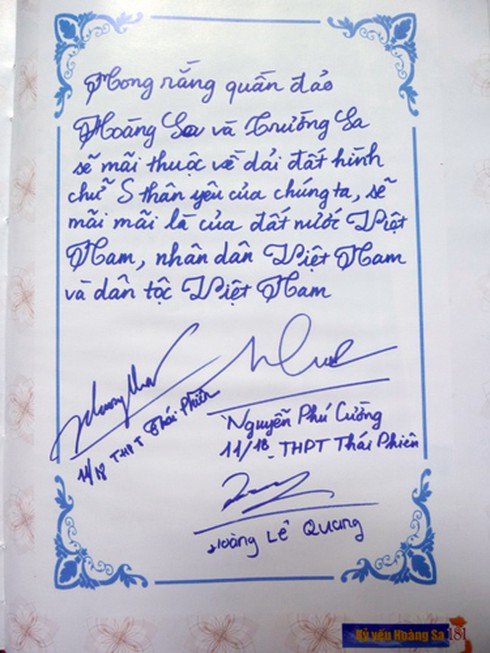 Mong rằng quần đảo
Hoàng Sa và Trường Sa
sẽ mãi thuộc về dải đất hình
chữ S thân yêu của chúng ta, sẽ
mãi mãi là của đất nước Việt
Nam, nhân dân Việt Nam
và dân tộc Việt Nam
11/18 THPT Thái Phiên
Nguyễn Phú Cường
11/18 - THPT Thái Phiên
Hoàng Lê Quang
Kỷ yếu Hoàng Sa 181